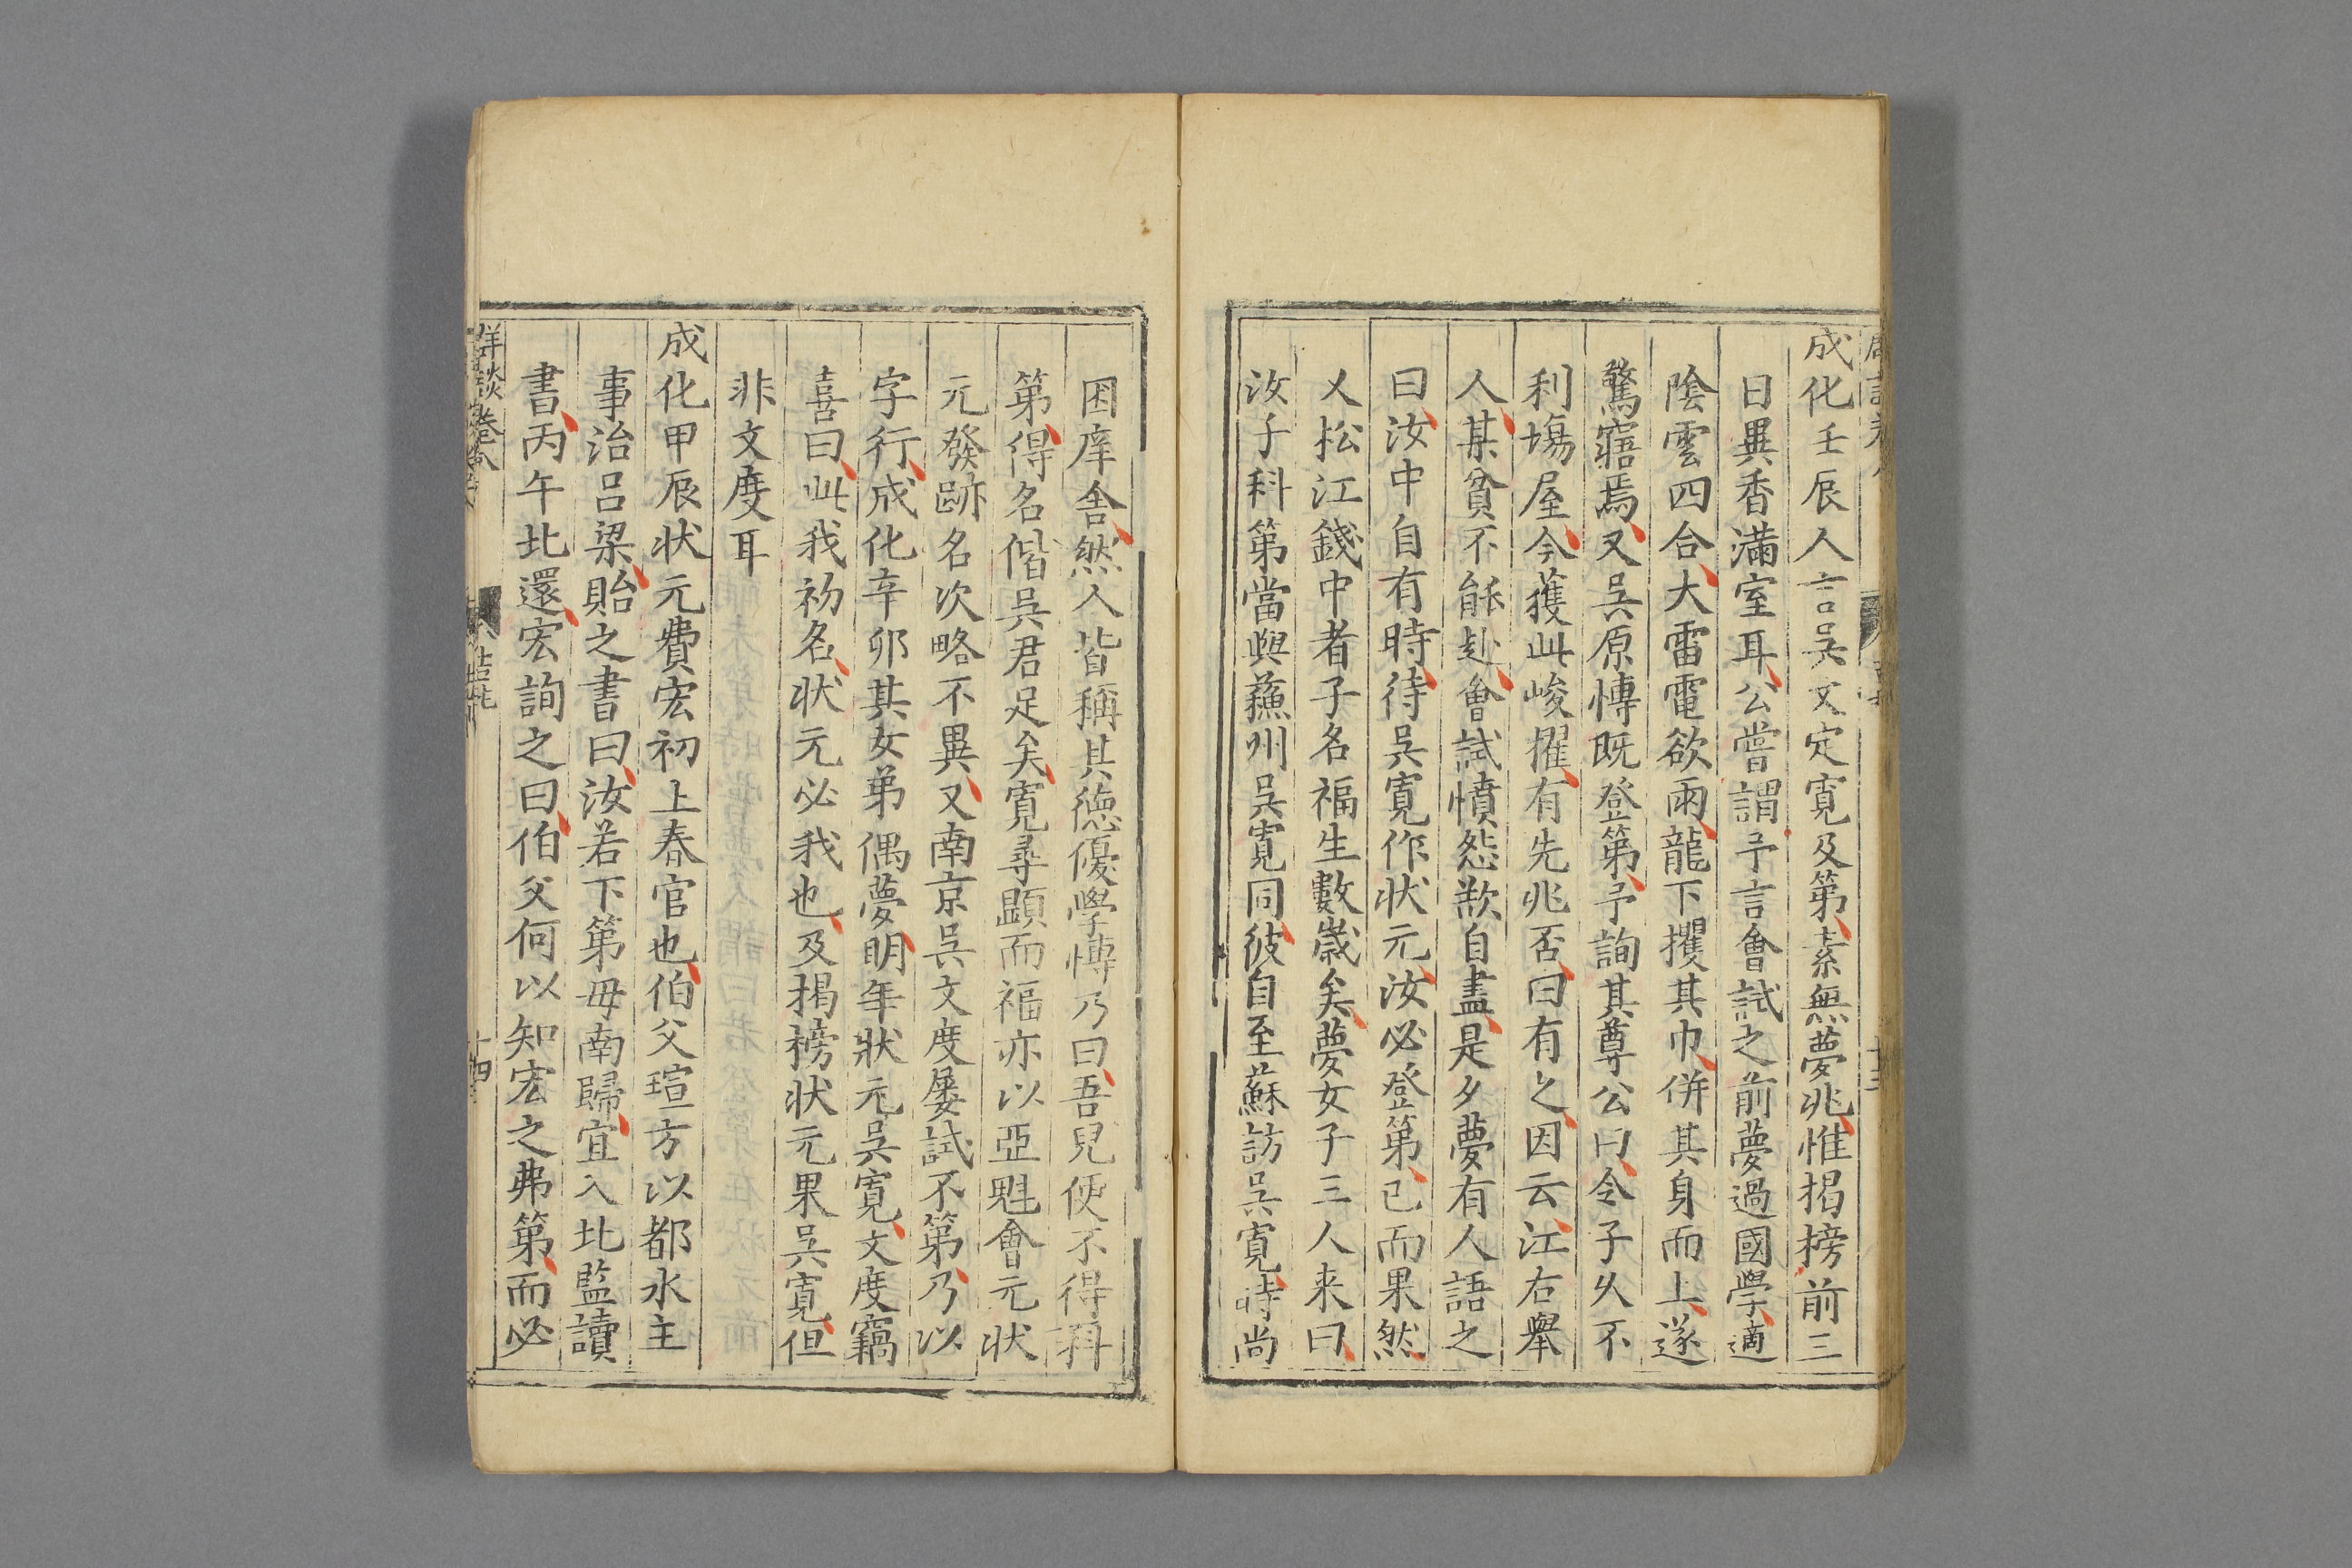 成化壬辰人言吴文定寛及第素無夢兆惟揭榜前三
日異香滿室耳公嘗謂予言會試之前夢過國學適
陰雲四合大雷電欲雨龍下攫其巾併其身而上遂
驚寤焉又吴原慱既登第予詢其尊公曰令子久不
利塲屋今獲此峻擢有先兆否曰有之因云江右舉
人某貧不能赴會試憤怨欺自盡是夕夢有人語之
曰汝中自有時待吴寛作状元汝必登第已而果然
又松江錢中者子名福生數歲矣夢女子三人来曰
汝子科第當與蘓州吴寛同彼自至蘇訪吴寛時尚
困庠舍然人皆稱其德優學慱乃曰吾兒便不得科
第得名偕吴君足矣寛尋顕而福亦以亞魁會元状
元發跡名次略不異又南京吴文度屡試不第乃以
字行成化辛卯其女弟偶夢明年狀元吴寛文度竊
喜曰此我初名状元必我也及揭榜状元果吴寛但
非文度耳
成化甲辰状元費宏初上春官也伯父瑄方以都水主
事治吕梁貽之書曰汝若下第毋南歸宜入北監讀
書丙午北還宏詢之曰伯父何以知宏之弗第而必
卷八
十四